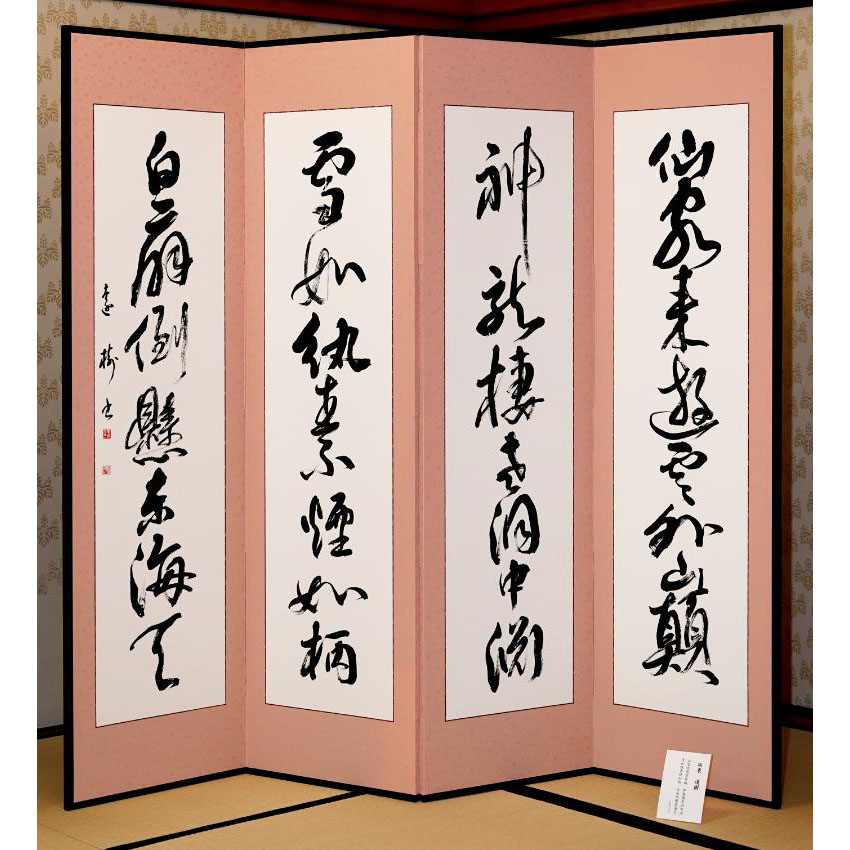 仙客来遊雲外巓
神龍棲老洞中渕
雪如紈素煙如柄
白扇倒懸東海天
遠樹書